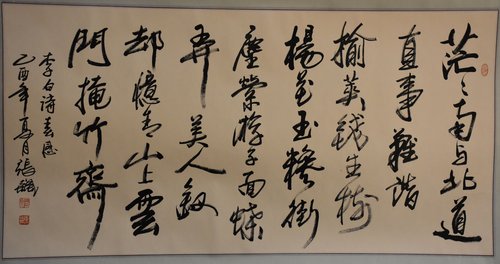 茫々南与北道
直事難諧
榆荚錢生樹
楊花玉糝街
塵縈游子面蝶
弄美人釵
却憶青山上雲
門掩竹齋
李白诗春感
乙酉年夏月張